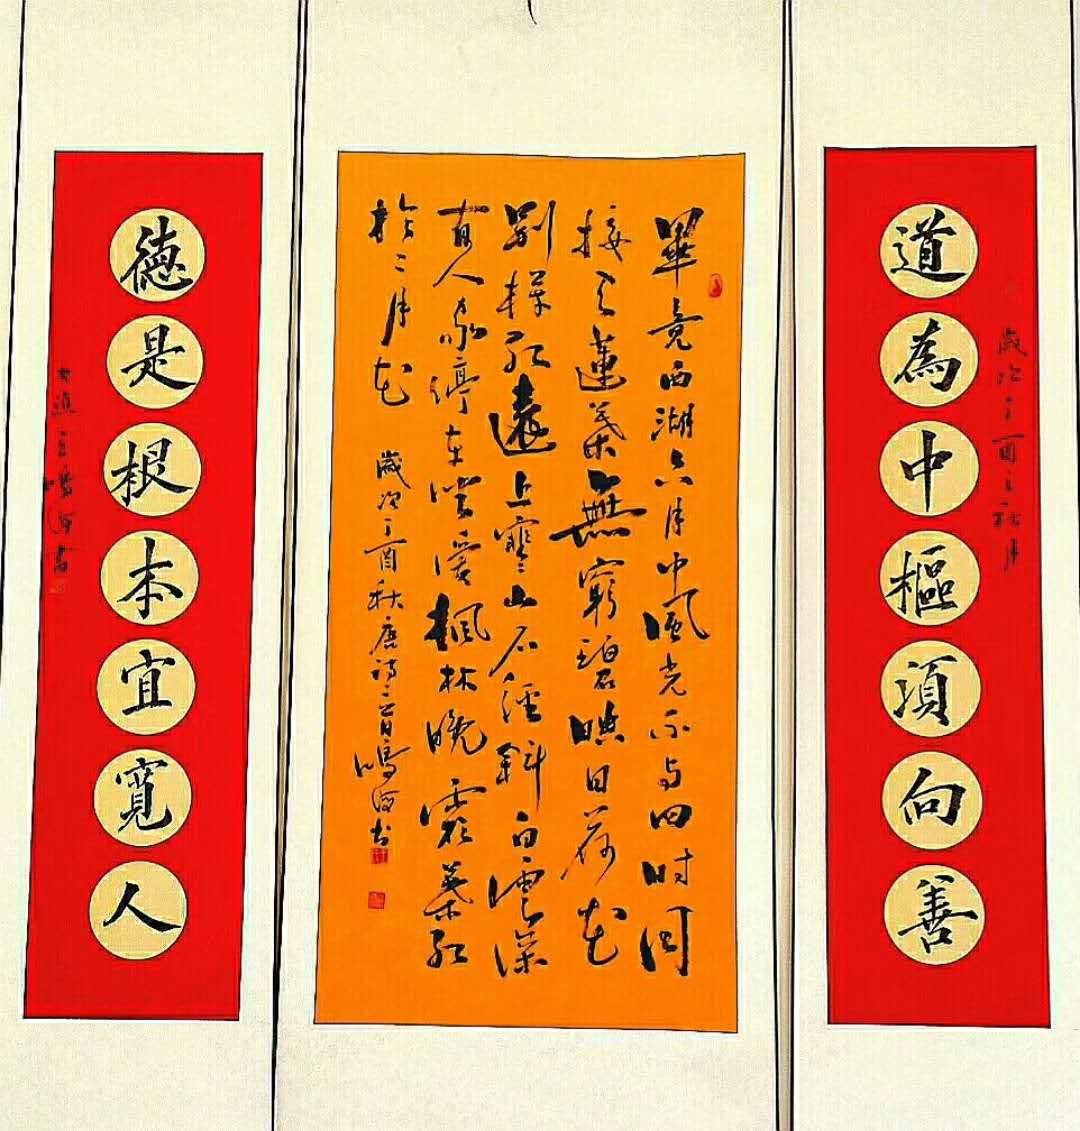 道為中樞須向善
歲次丁酉之秋月
畢竟西湖六月中風光不与四时同
接天蓮葉無窮碧映日荷花
别樣红遠上寒山石徑斜白雲深
有人家停车坐愛楓林晚霜葉红
於二月花
歲次丁酉秋唐詩二首鳴河书
德是根本宜寬人